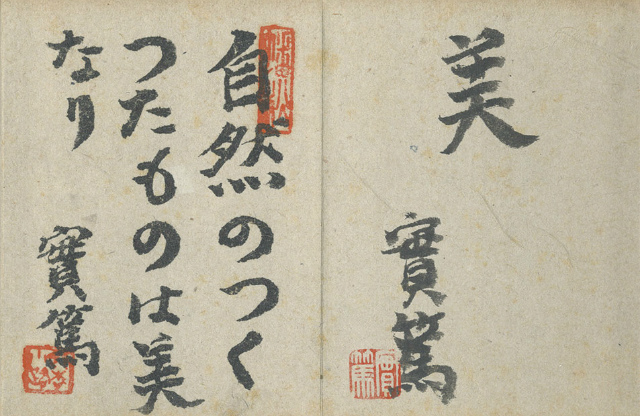 美
實篤
自然のつく
つたものは美
なり
實篤